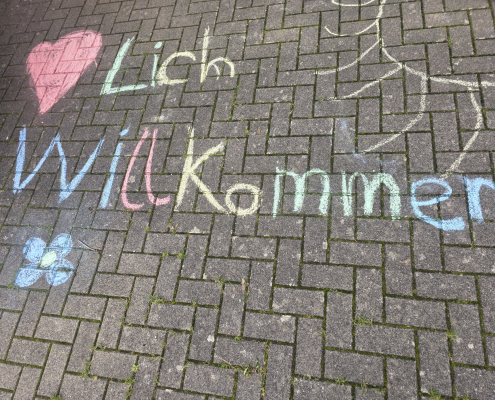 Lich
WillKommen